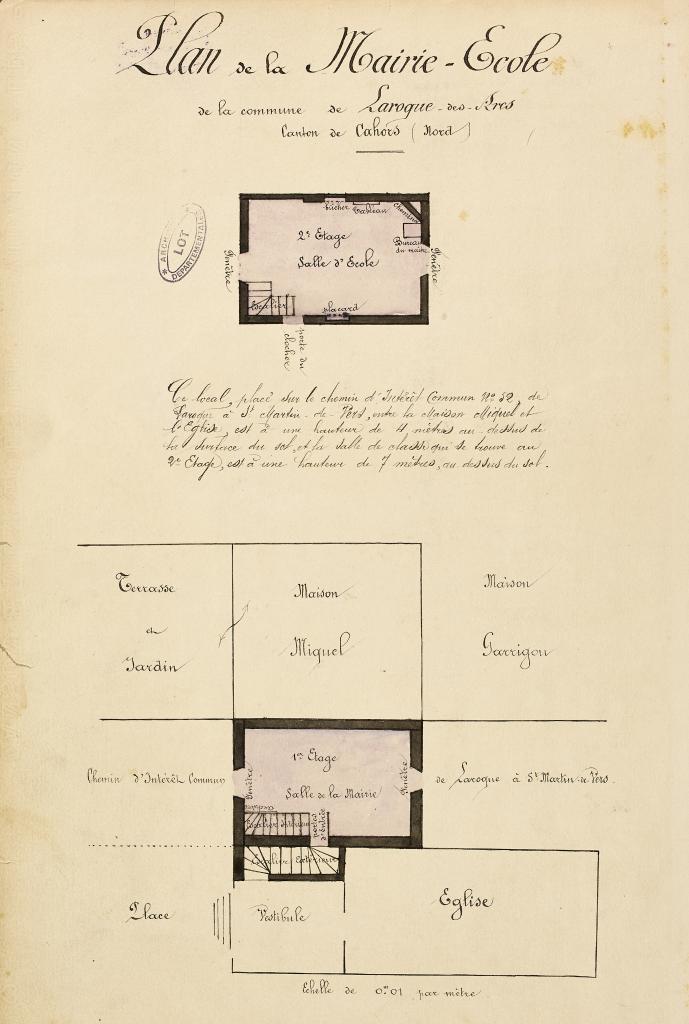 Plan de la Mairie-Ecole
de la commune de Laroque-des-Arcs
Canton de Cahors (Nord)
ARCHIVES DÉPARTEMENTALES
LOT
bûcher
Tableau
cheminée
2e Etage
Bureau
du maître
Salle d'Ecole
Fenêtre
Fenêtre
Escalier
placard
porte du
clocher
Ce local, placé sur le chemin d'Intérêt Commun No 52, de
Laroque à St Martin-de-Vers, entre la Maison Miquel et
l'Eglise, est à une hauteur de 4 mètres au-dessus de
la surface du sol, et la salle de classe qui se trouve au
2e Etage, est à une hauteur de 7 mètres, au dessus du sol.
Terrasse
et
Jardin
Maison
Miquel
Maison
Garrigou
Chemin d'Intérêt Commun
de Laroque à St Martin-de-Vers
1er Etage
Salle de la Mairie
Fenêtre
Fenêtre
Escalier Intérieur
portes
d'Entrée
Escalier Extérieur
Place
Vestibule
Eglise
Echelle de 0m01 par mètre